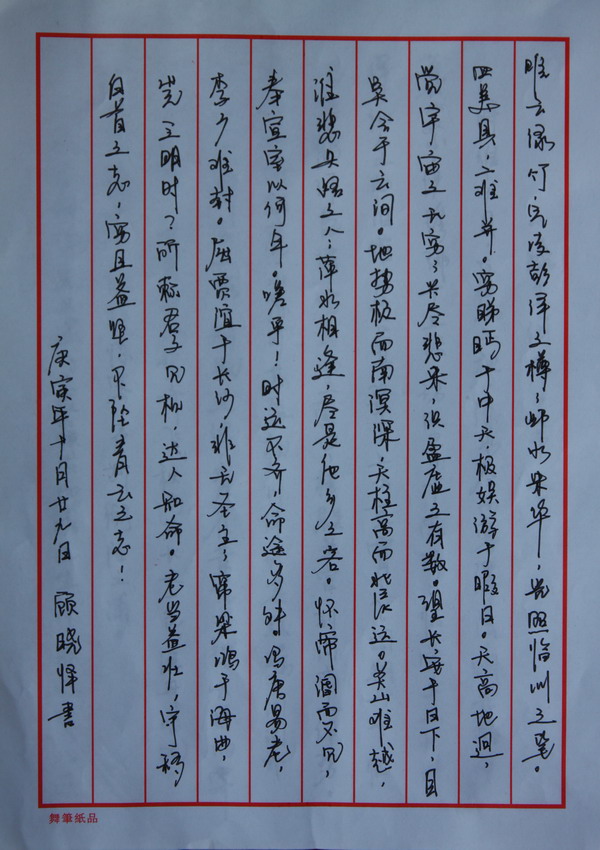 睢园绿竹,气凌彭泽之樽;邺水朱华,光照临川之笔。
四美具,二难并。穷睇眄于中天,极娱游于暇日。天高地迥,
觉宇宙之无穷;兴尽悲来,识盈虚之有数。望长安于日下,目
吴会于云间。地势极而南溟深,天柱高而北辰远。关山难越,
谁悲失路之人;萍水相逢,尽是他乡之客。怀帝阍而不见,
奉宣室以何年。嗟乎!时运不齐,命途多舛。冯唐易老,
李广难封。屈贾谊于长沙,非无圣主;窜梁鸿于海曲,
岂乏明时?所赖君子见机,达人知命。老当益壮,宁移
白首之志,穷且益坚,不坠青云之志!
庚寅年十月廿九日 顾晓怿书
舞筆纸品